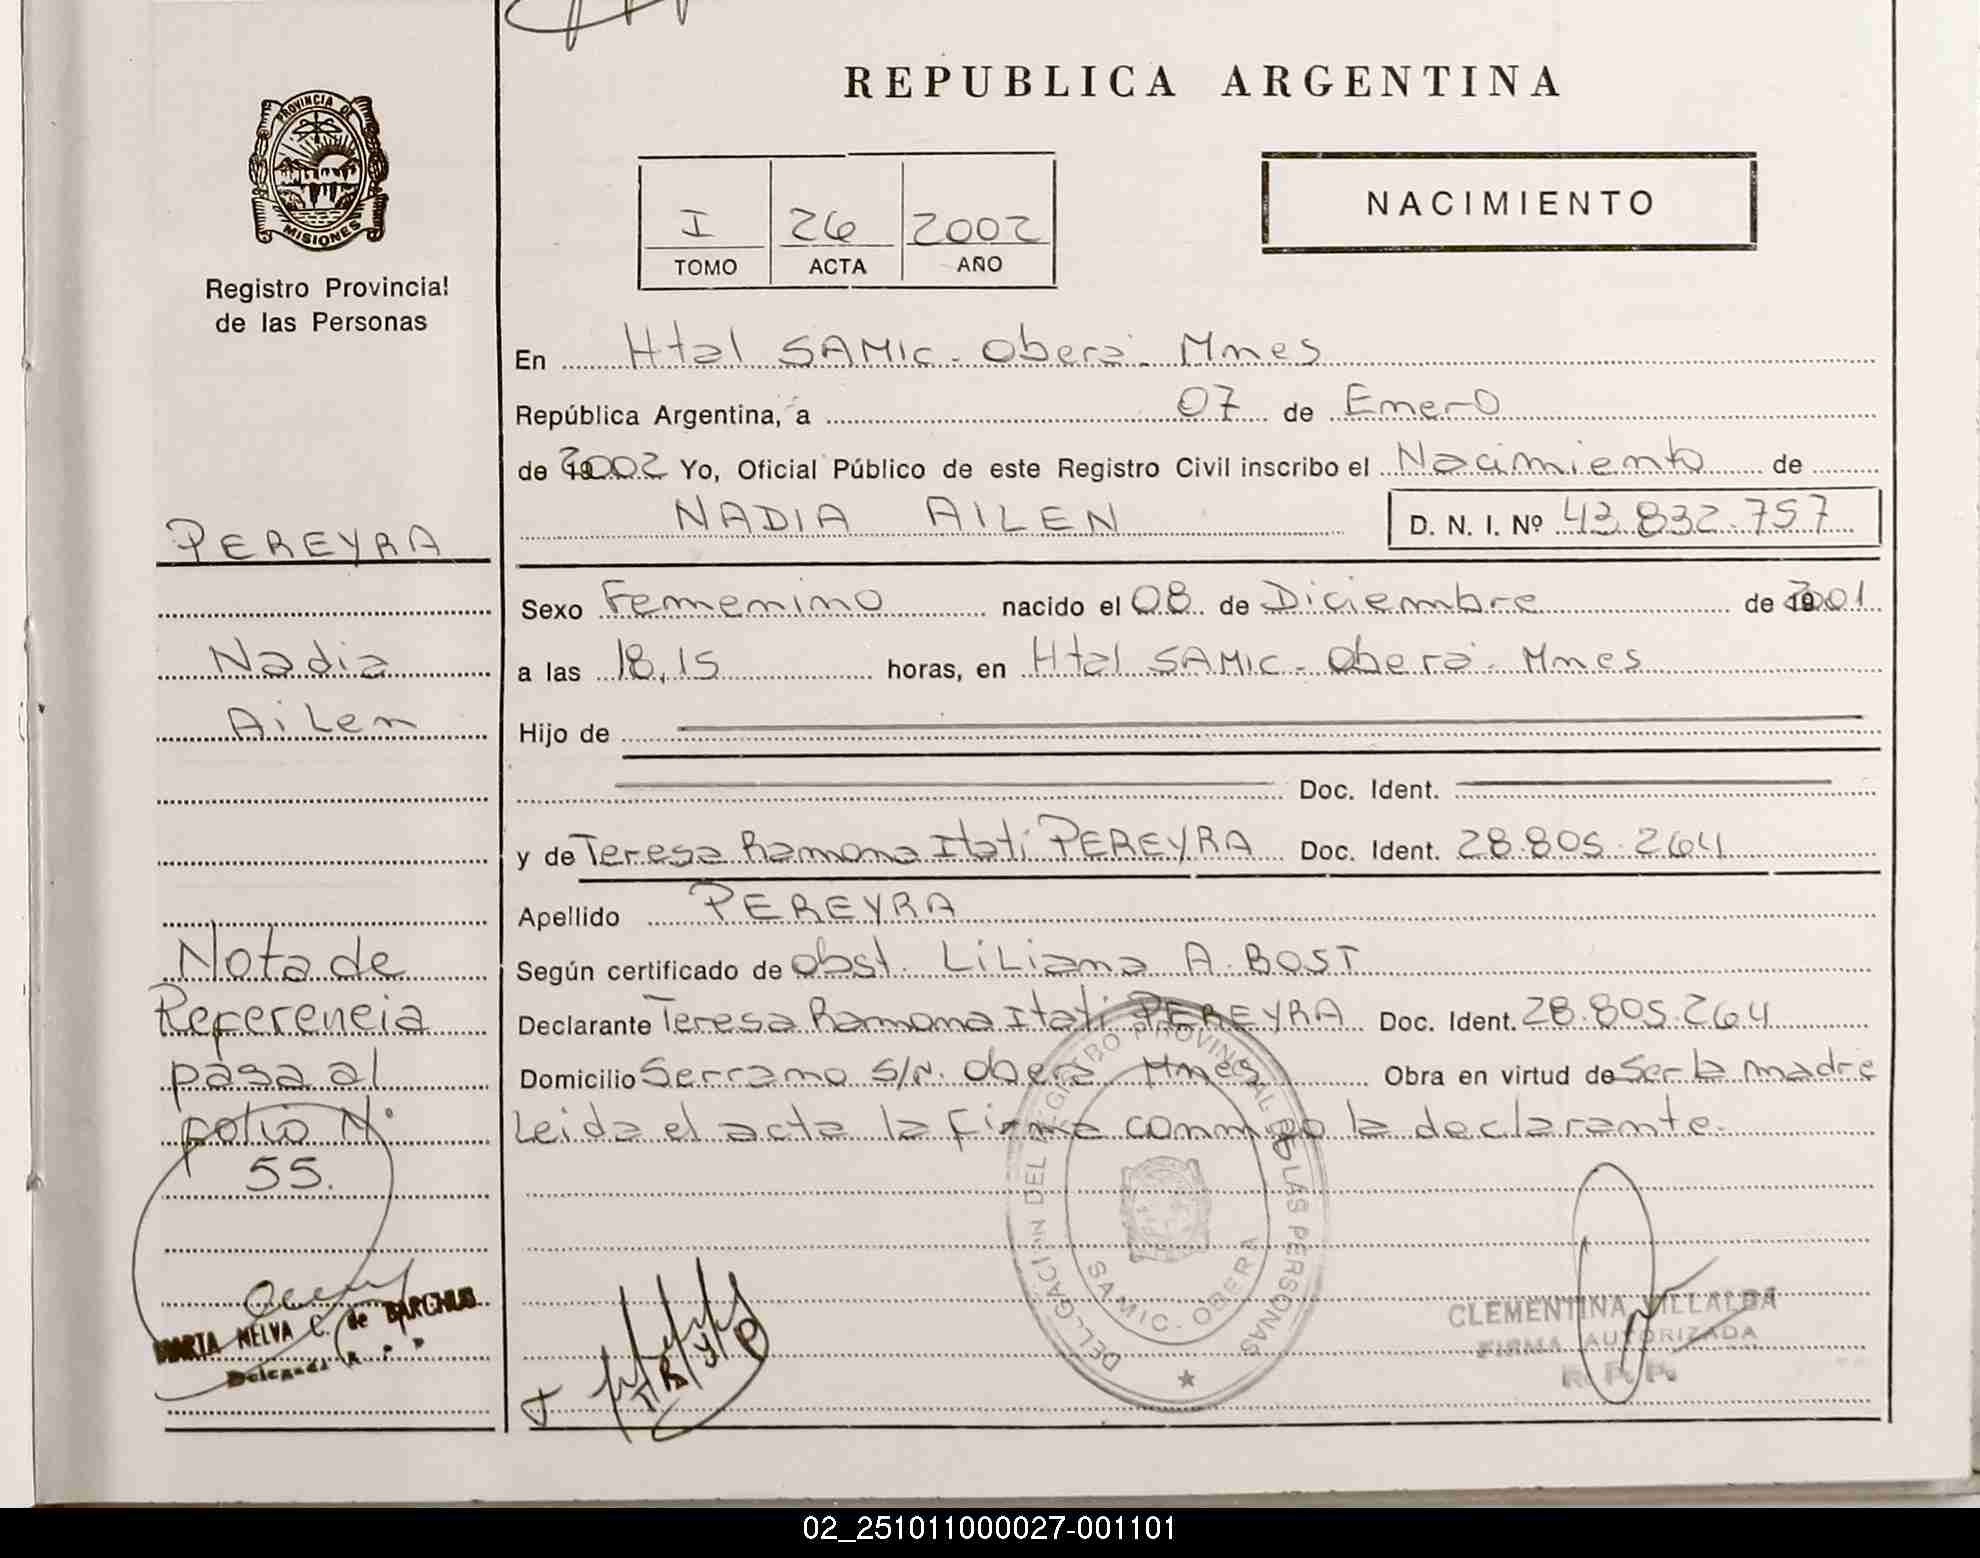 REPUBLICA ARGENTINA
PROVINCIA DE
MISIONES
Registro Provincial
de las Personas
I 26 2002
TOMO ACTA AÑO
NACIMIENTO
En Htal SAMIC - Oberá - Mnes
República Argentina, a 07 de Enero
de 2002 Yo, Oficial Público de este Registro Civil inscribo el Nacimiento de
NADIA AILEN D. N. I. Nº 43.832.757
PEREYRA
Sexo Femenino nacido el 08 de Diciembre de 2001
Nadia
a las 18,15 horas, en Htal SAMIC - Oberá - Mnes
Ailen
Hijo de
Doc. Ident.
y de Teresa Ramona Itatí PEREYRA Doc. Ident. 28.805.264
Apellido PEREYRA
Según certificado de obst. LiLiana A. BOST
Declarante Teresa Ramona Itatí PEREYRA Doc. Ident. 28.805.264
Domicilio Serrano S/N. Oberá Mnes Obra en virtud de Ser la madre
Leida el acta la firma conmigo la declarante.
Nota de
Referencia
pasa al
folio Nº
55.
DELEGACION DEL REGISTRO PROVINCIAL DE LAS PERSONAS
SAMIC - OBERA
MARTA NELVA C. de
Delegada
CLEMENTINA VILLALBA
FIRMA AUTORIZADA
R. P. P.
02_251011000027-001101